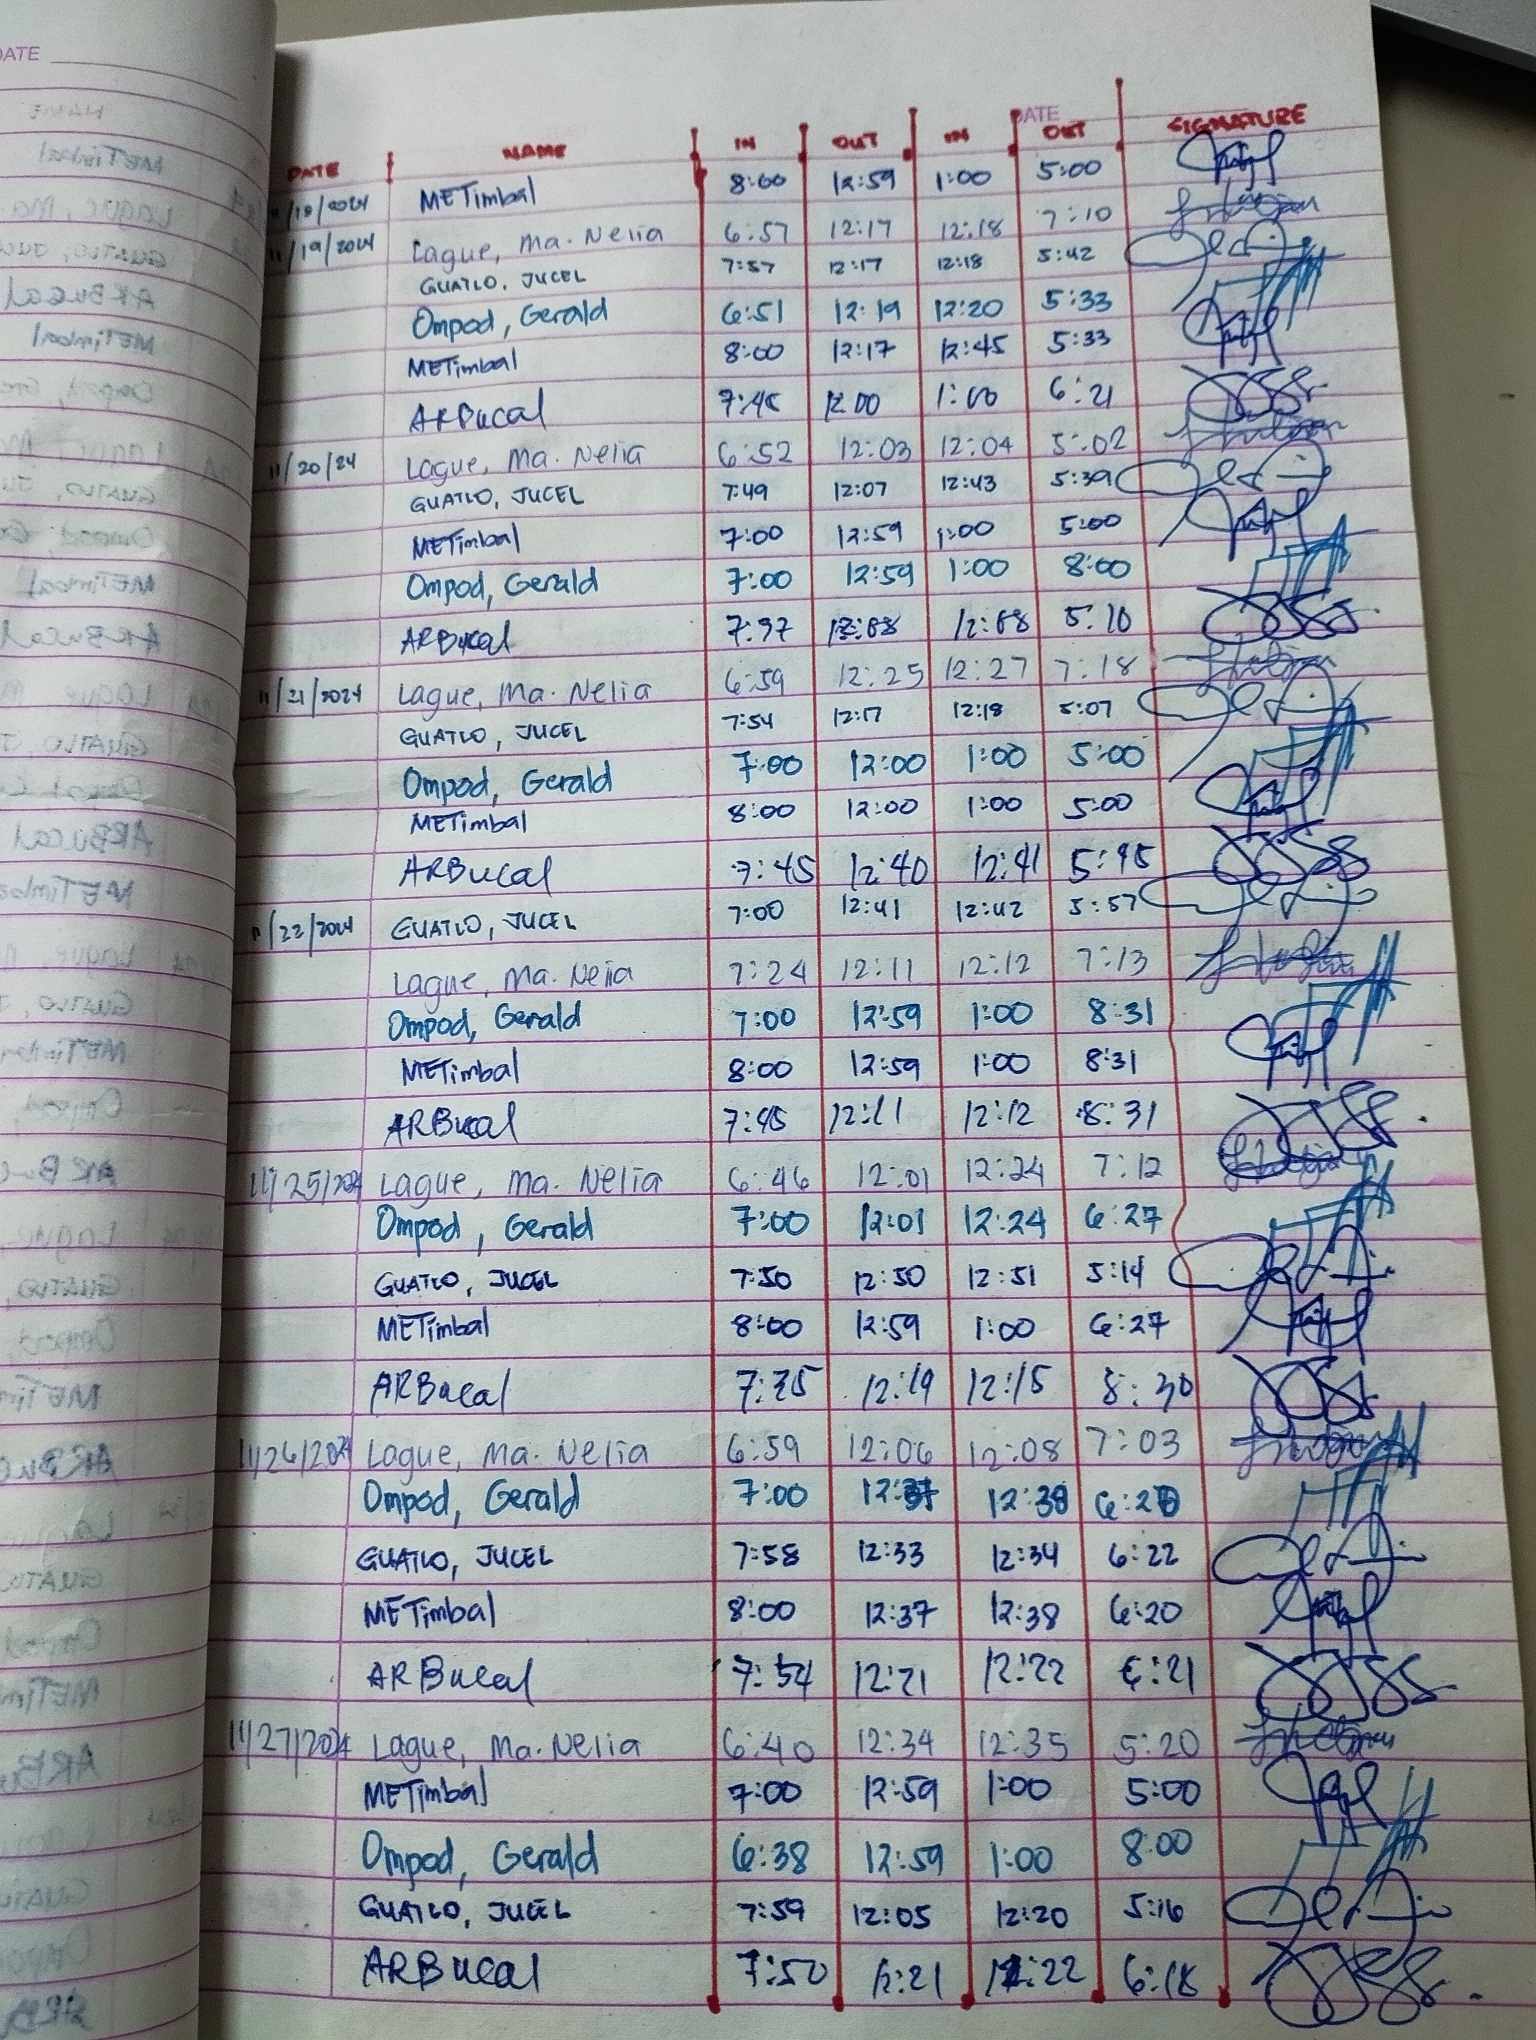 DATE
DATE
DATE NAME IN OUT IN OUT SIGNATURE
11/18/2024 METimbal 8:00 12:59 1:00 5:00
11/19/2024 Lague, Ma. Nelia 6:57 12:17 12:18 7:10
GUATLO, JUCEL 7:57 12:17 12:18 5:42
Ompod, Gerald 6:51 12:19 12:20 5:33
METimbal 8:00 12:17 12:45 5:33
ARBucal 7:45 12:00 1:00 6:21
11/20/24 Lague, Ma. Nelia 6:52 12:03 12:04 5:02
GUATLO, JUCEL 7:49 12:07 12:43 5:39
METimbal 7:00 12:59 1:00 5:00
Ompod, Gerald 7:00 12:59 1:00 8:00
ARBucal 5:10
11/21/2024 Lague, Ma. Nelia 6:59 12:25 12:27 7:18
GUATLO, JUCEL 7:54 12:17 12:18 5:07
Ompod, Gerald 7:00 12:00 1:00 5:00
METimbal 8:00 12:00 1:00 5:00
ARBucal 7:45 12:40 12:41 5:45
11/22/2024 GUATLO, JUCEL 7:00 12:41 12:42 5:57
Lague, Ma. Nelia 7:24 12:11 12:12 7:13
Ompod, Gerald 7:00 12:59 1:00 8:31
METimbal 8:00 12:59 1:00 8:31
ARBucal 7:45 12:11 12:12 8:31
11/25/2024 Lague, Ma. Nelia 6:46 12:01 12:24 7:12
Ompod, Gerald 7:00 12:01 12:24 6:27
GUATLO, JUCEL 7:50 12:50 12:51 5:14
METimbal 8:00 12:59 1:00 6:27
ARBucal 12:15 8:30
11/26/2024 Lague, Ma. Nelia 6:59 12:06 12:08 7:03
Ompod, Gerald 7:00 12:37 12:38
GUATLO, JUCEL 7:58 12:33 12:34 6:22
METimbal 8:00 12:37 12:38 6:20
ARBucal 7:54 12:21 12:22 6:21
11/27/2024 Lague, Ma. Nelia 6:40 12:34 12:35 5:20
METimbal 7:00 12:59 1:00 5:00
Ompod, Gerald 6:38 12:59 1:00 8:00
GUATLO, JUCEL 7:59 12:05 12:20 5:16
ARBucal 7:50 12:21 12:22 6:18